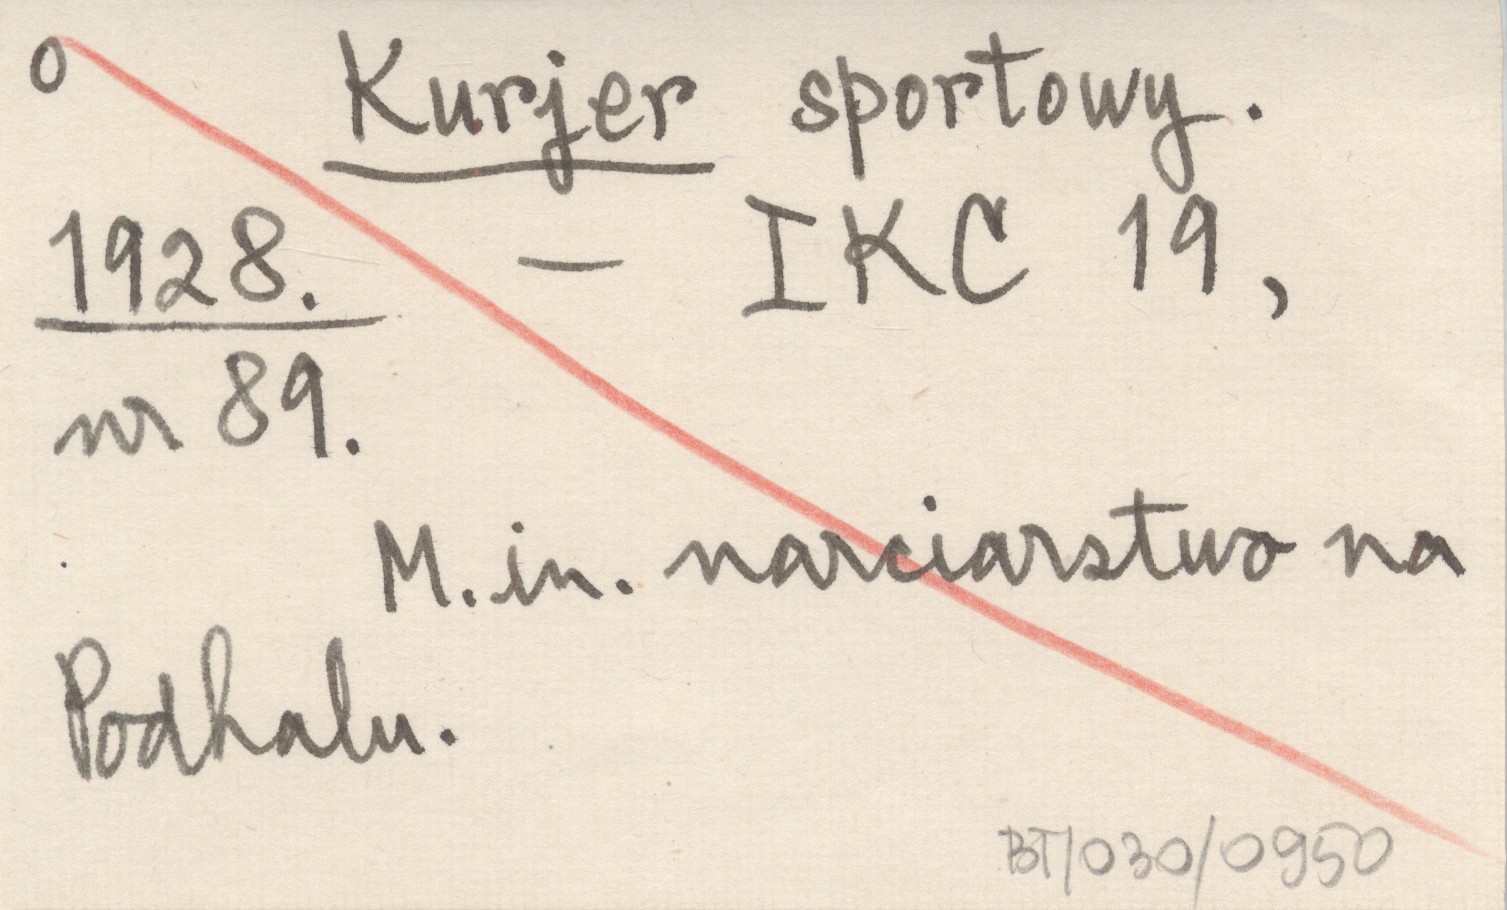 o
Kurjer sportowy.
1928. — IKC 19,
nr 89.
M. in. narciarstwo na
Podhalu.
BT/030/0950